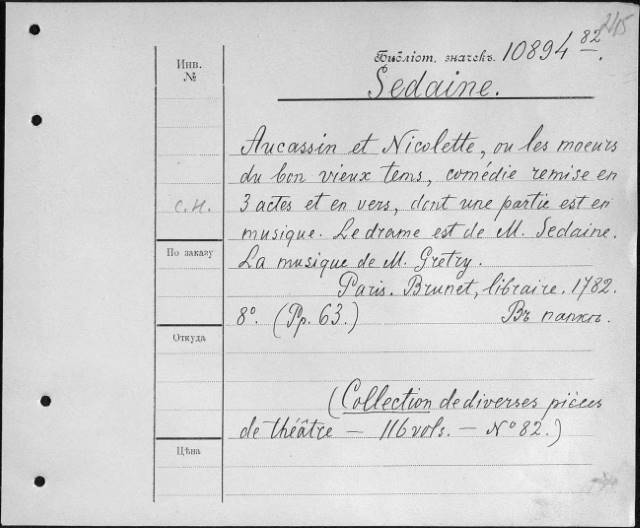 245
Инв.
№
Библіот. значекъ. 10894 82.
Sedaine.
Aucassin et Nicolette, ou les moeurs
du bon vieux tems, comédie remise en
С.Н. 3 actes et en vers, dont une partie est en
musique. Le drame est de M. Sedaine.
По заказу
La musique de M. Gretry.
Paris. Brunet, libraire. 1782.
8º. (Pp. 63.) Въ папкѣ.
Откуда
(Collection de diverses pièces
de théâtre — 116 vols. — Nº 82.)
Цѣна